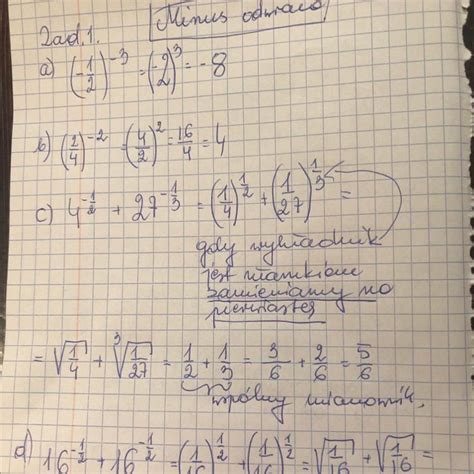 Minus odwraca
Zad. 1.
a) (-1/2)^-3 = (-2/2)^3 = -8
b) (2/4)^-2 = (4/2)^2 = 16/4 = 4
c) 4^-1/2 + 27^-1/3 = (1/4)^1/2 + (1/27)^1/3 =
gdy wykładnik
jest ułamkiem
zamieniamy na
pierwiastek
= √1/4 + ³√1/27 = 1/2 + 1/3 = 3/6 + 2/6 = 5/6
wspólny mianownik.
d) 16^-1/2 + 16^-1/2 = (1/16)^1/2 + (1/16)^1/2 = √1/16 + √1/16 =